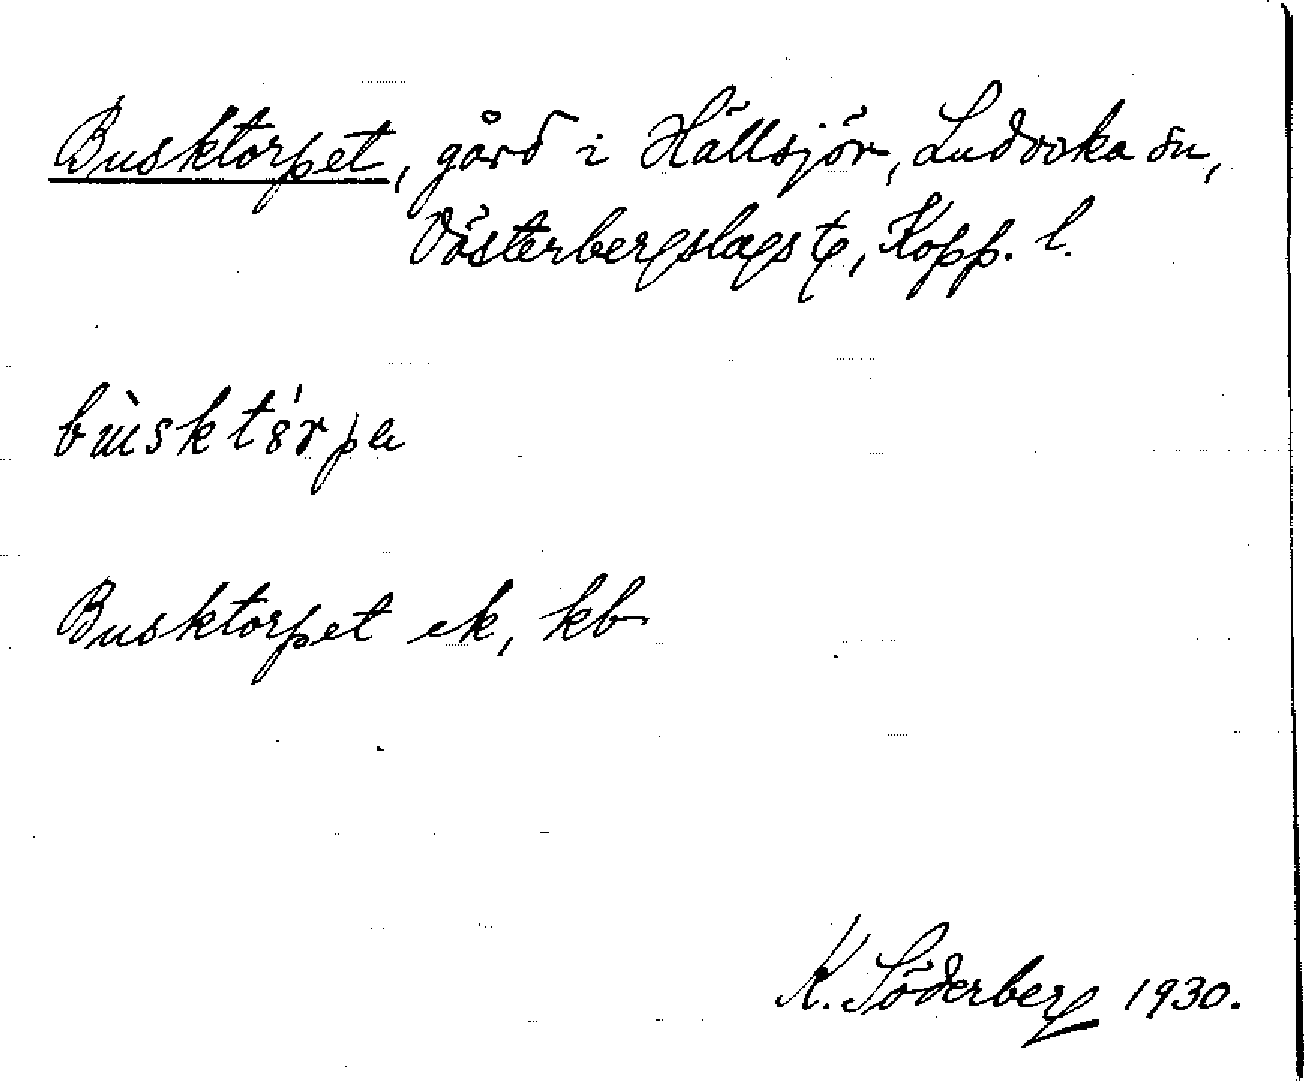 Busktorpet, gård i Hällsjön, Ludvika sn,
Västerbergslags tg, Kopp. l.
bùsktórpa
Busktorpet ek, kb
K. Söderberg 1930.